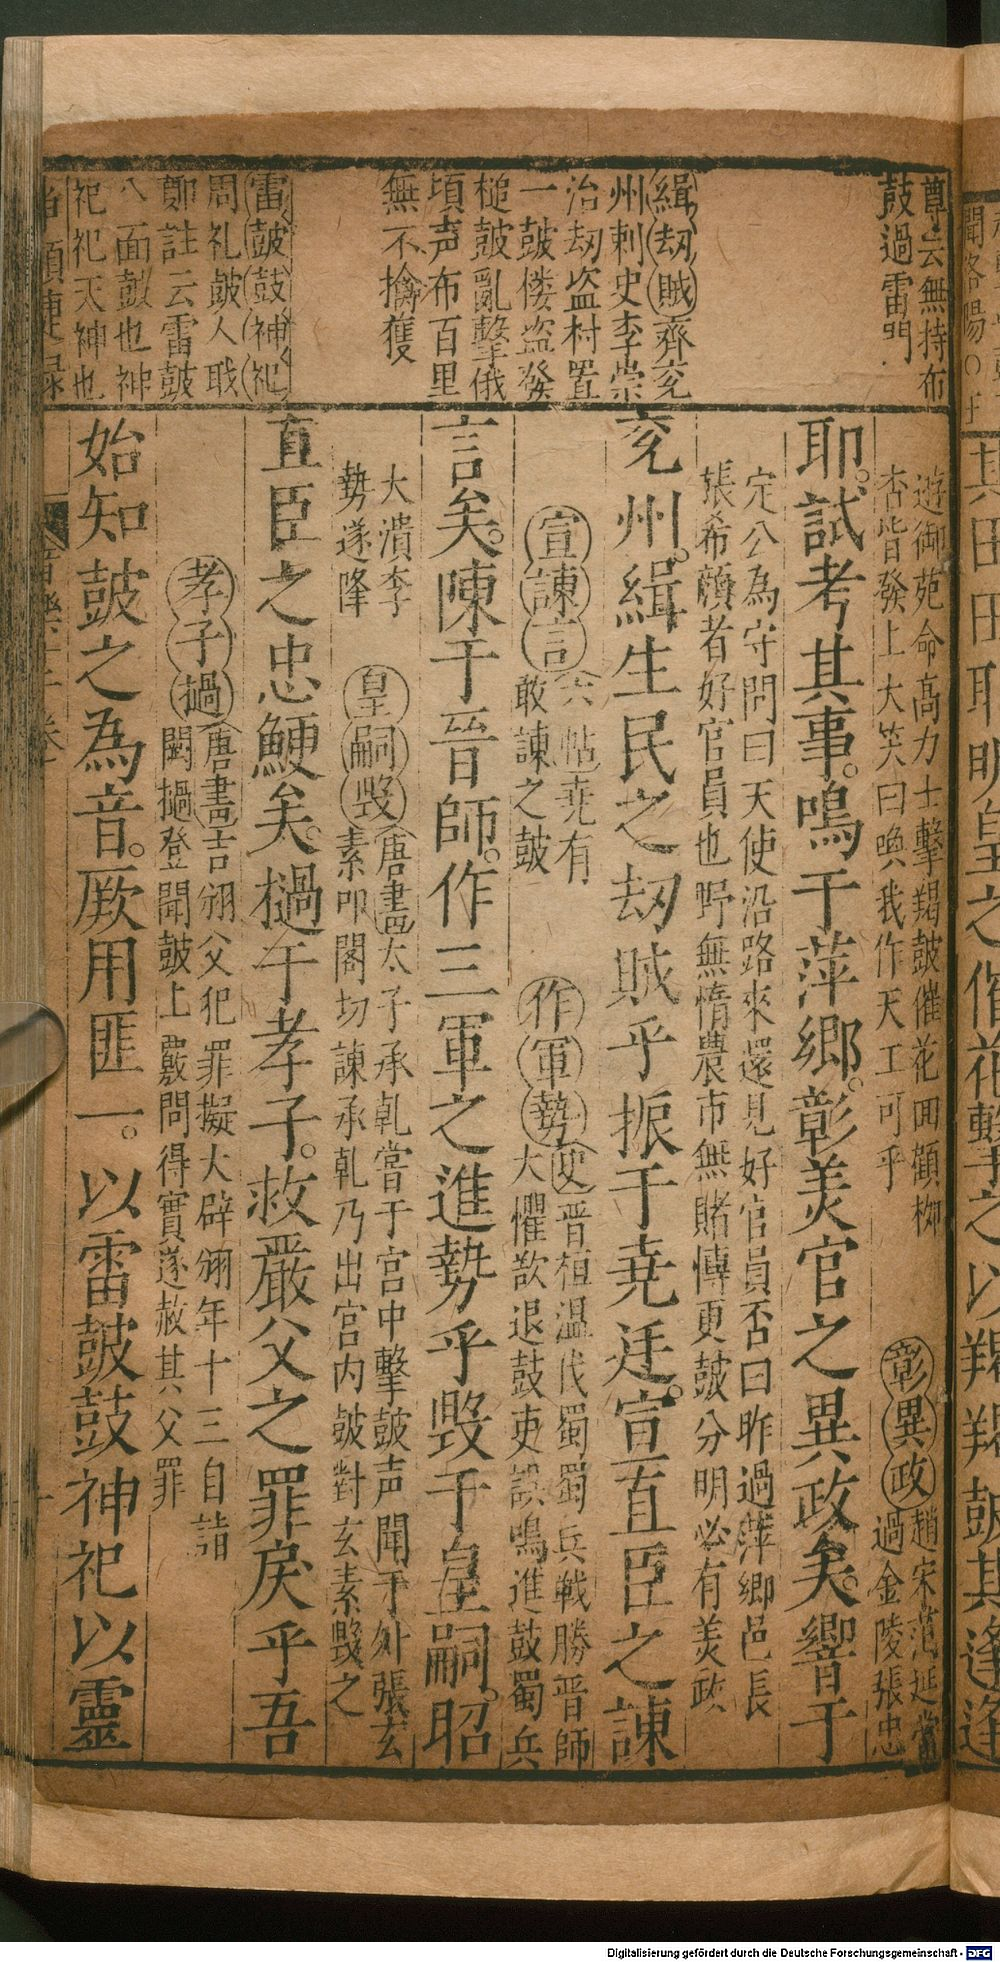 尊云無持布
鼓過雷門
緝刼賊齊兖
州刺史李崇
治刼盗村置
一皷偻盗發
槌皷亂擊俄
頃声布百里
無不擒獲
雷皷鼓神祀
周礼皷人職
鄭註云雷皷
八面皷也神
祀祀天神也
遊御苑命高力士擊羯皷催花囬顧柳
杏皆發上大笑曰喚我作天工可乎
彰異政趙宋范延賞
過金陵張忠
耶。試考其事。鳴于萍鄉。彰美官之異政矣。響于
定公為守問曰天使沿路來還見好官員否曰昨過萍鄉邑長
張希顔者好官員也野無惰農市無賭愽更皷分明必有美政
兖州。緝生民之刼賊乎振于堯廷。宣直臣之諫
宣諫言六帖堯有
敢諫之皷
作軍勢史晋桓温伐蜀蜀兵戰勝晋師
大懼欲退鼓吏誤鳴進鼓蜀兵
言矣。陳于晉師。作三軍之進勢乎毁于皇嗣。昭
大潰李
勢遂降
皇嗣毁唐書太子承乹嘗于宮中擊皷声聞于外張玄
素叩閣切諫承乹乃出宮内皷對玄素毁之
直臣之忠鯁矣。撾于孝子。救嚴父之罪戾乎吾
孝子撾唐書吉翂父犯罪擬大辟翂年十三自詣
闕撾登聞皷上覈問得實遂赦其父罪
始知皷之為音。厥用匪一。以雷皷鼓神祀以靈
其田田耶明皇之催花擊之以羯羯皷其逢逢
Digitalisierung gefördert durch die Deutsche Forschungsgemeinschaft - DFG